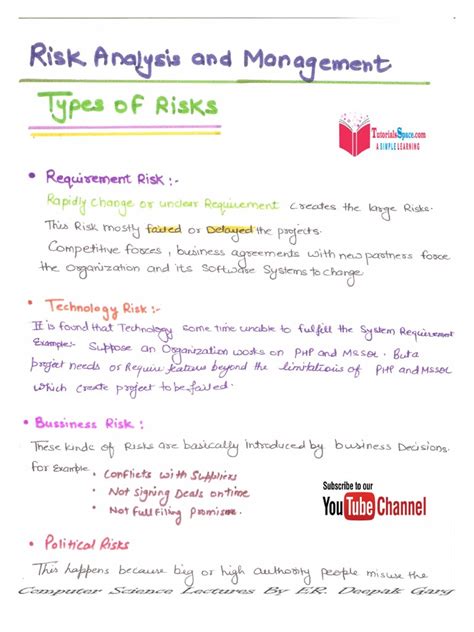 Risk Analysis and Management
Types of Risks
TutorialsSpace.com
A SIMPLE LEARNING
• Requirement Risk :-
Rapidly Change or unclear Requirement creates the large Risks.
This Risk mostly failed or Delayed the projects.
Competitive forces, business agreements with new partners force
the Organization and its Software Systems to change
• Technology Risk :-
It is found that Technology some time unable to fulfill the System Requirement
Example:- Suppose an Organization works on PHP and MSSQL. But a
project needs or Require features beyond the limitations of PHP and MSSQL
which create project to be failed.
• Bussiness Risk :
These kinds of Risks are basically introduced by business Decisions.
For Example • Conflicts with Suppliers
• Not signing Deals on time
• Not full filing Promise.
Subscribe to our
YouTube Channel
• Political Risks
This happens because big or high authority people misuse the
Computer Science Lectures By ER. Deepak Garg